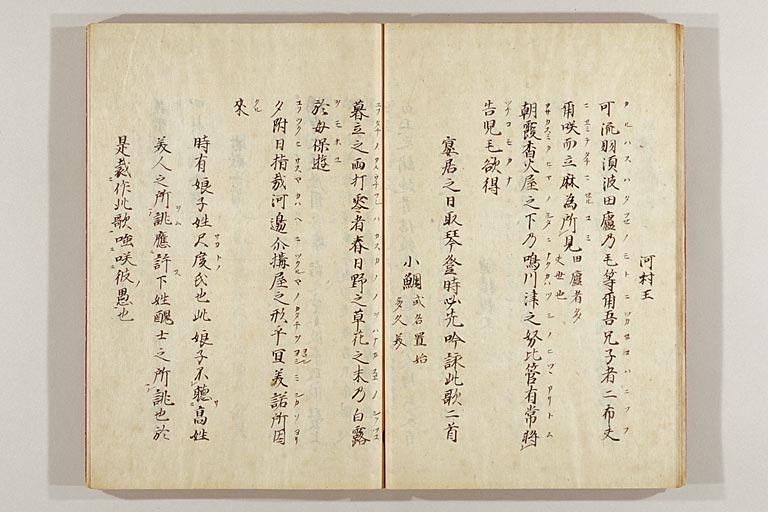 河村王
可流羽須波田廬乃毛等尓吾兄子者二布夫
尓咲而立麻為所見田廬者多夫世也
朝霞香火屋之下乃鳴川津之努比管有常将
告児毛欲得
宴居之日取琴登時必先吟詠此歌二首
小鯛 或名置始多久美
暮立之雨打零者春日野之草花之末乃白露
於母保遊
夕附日指哉河邊尓構屋之形乎宜美諾所因
来
時有娘子姓尺度氏也此娘子不聴高姓
美人之所誂應許下姓醜士之所誂也於
是裁作此歌嗤咲彼愚也